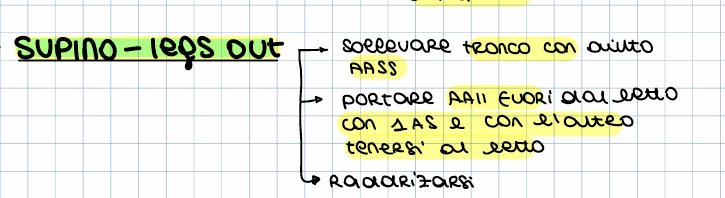 SUPINO - legs OUT
sollevare tronco con aiuto
AASS
PORTARE AAII FUORI dal letto
CON 1 AS e con l'altro
tenersi al letto
RADDRIZARSI